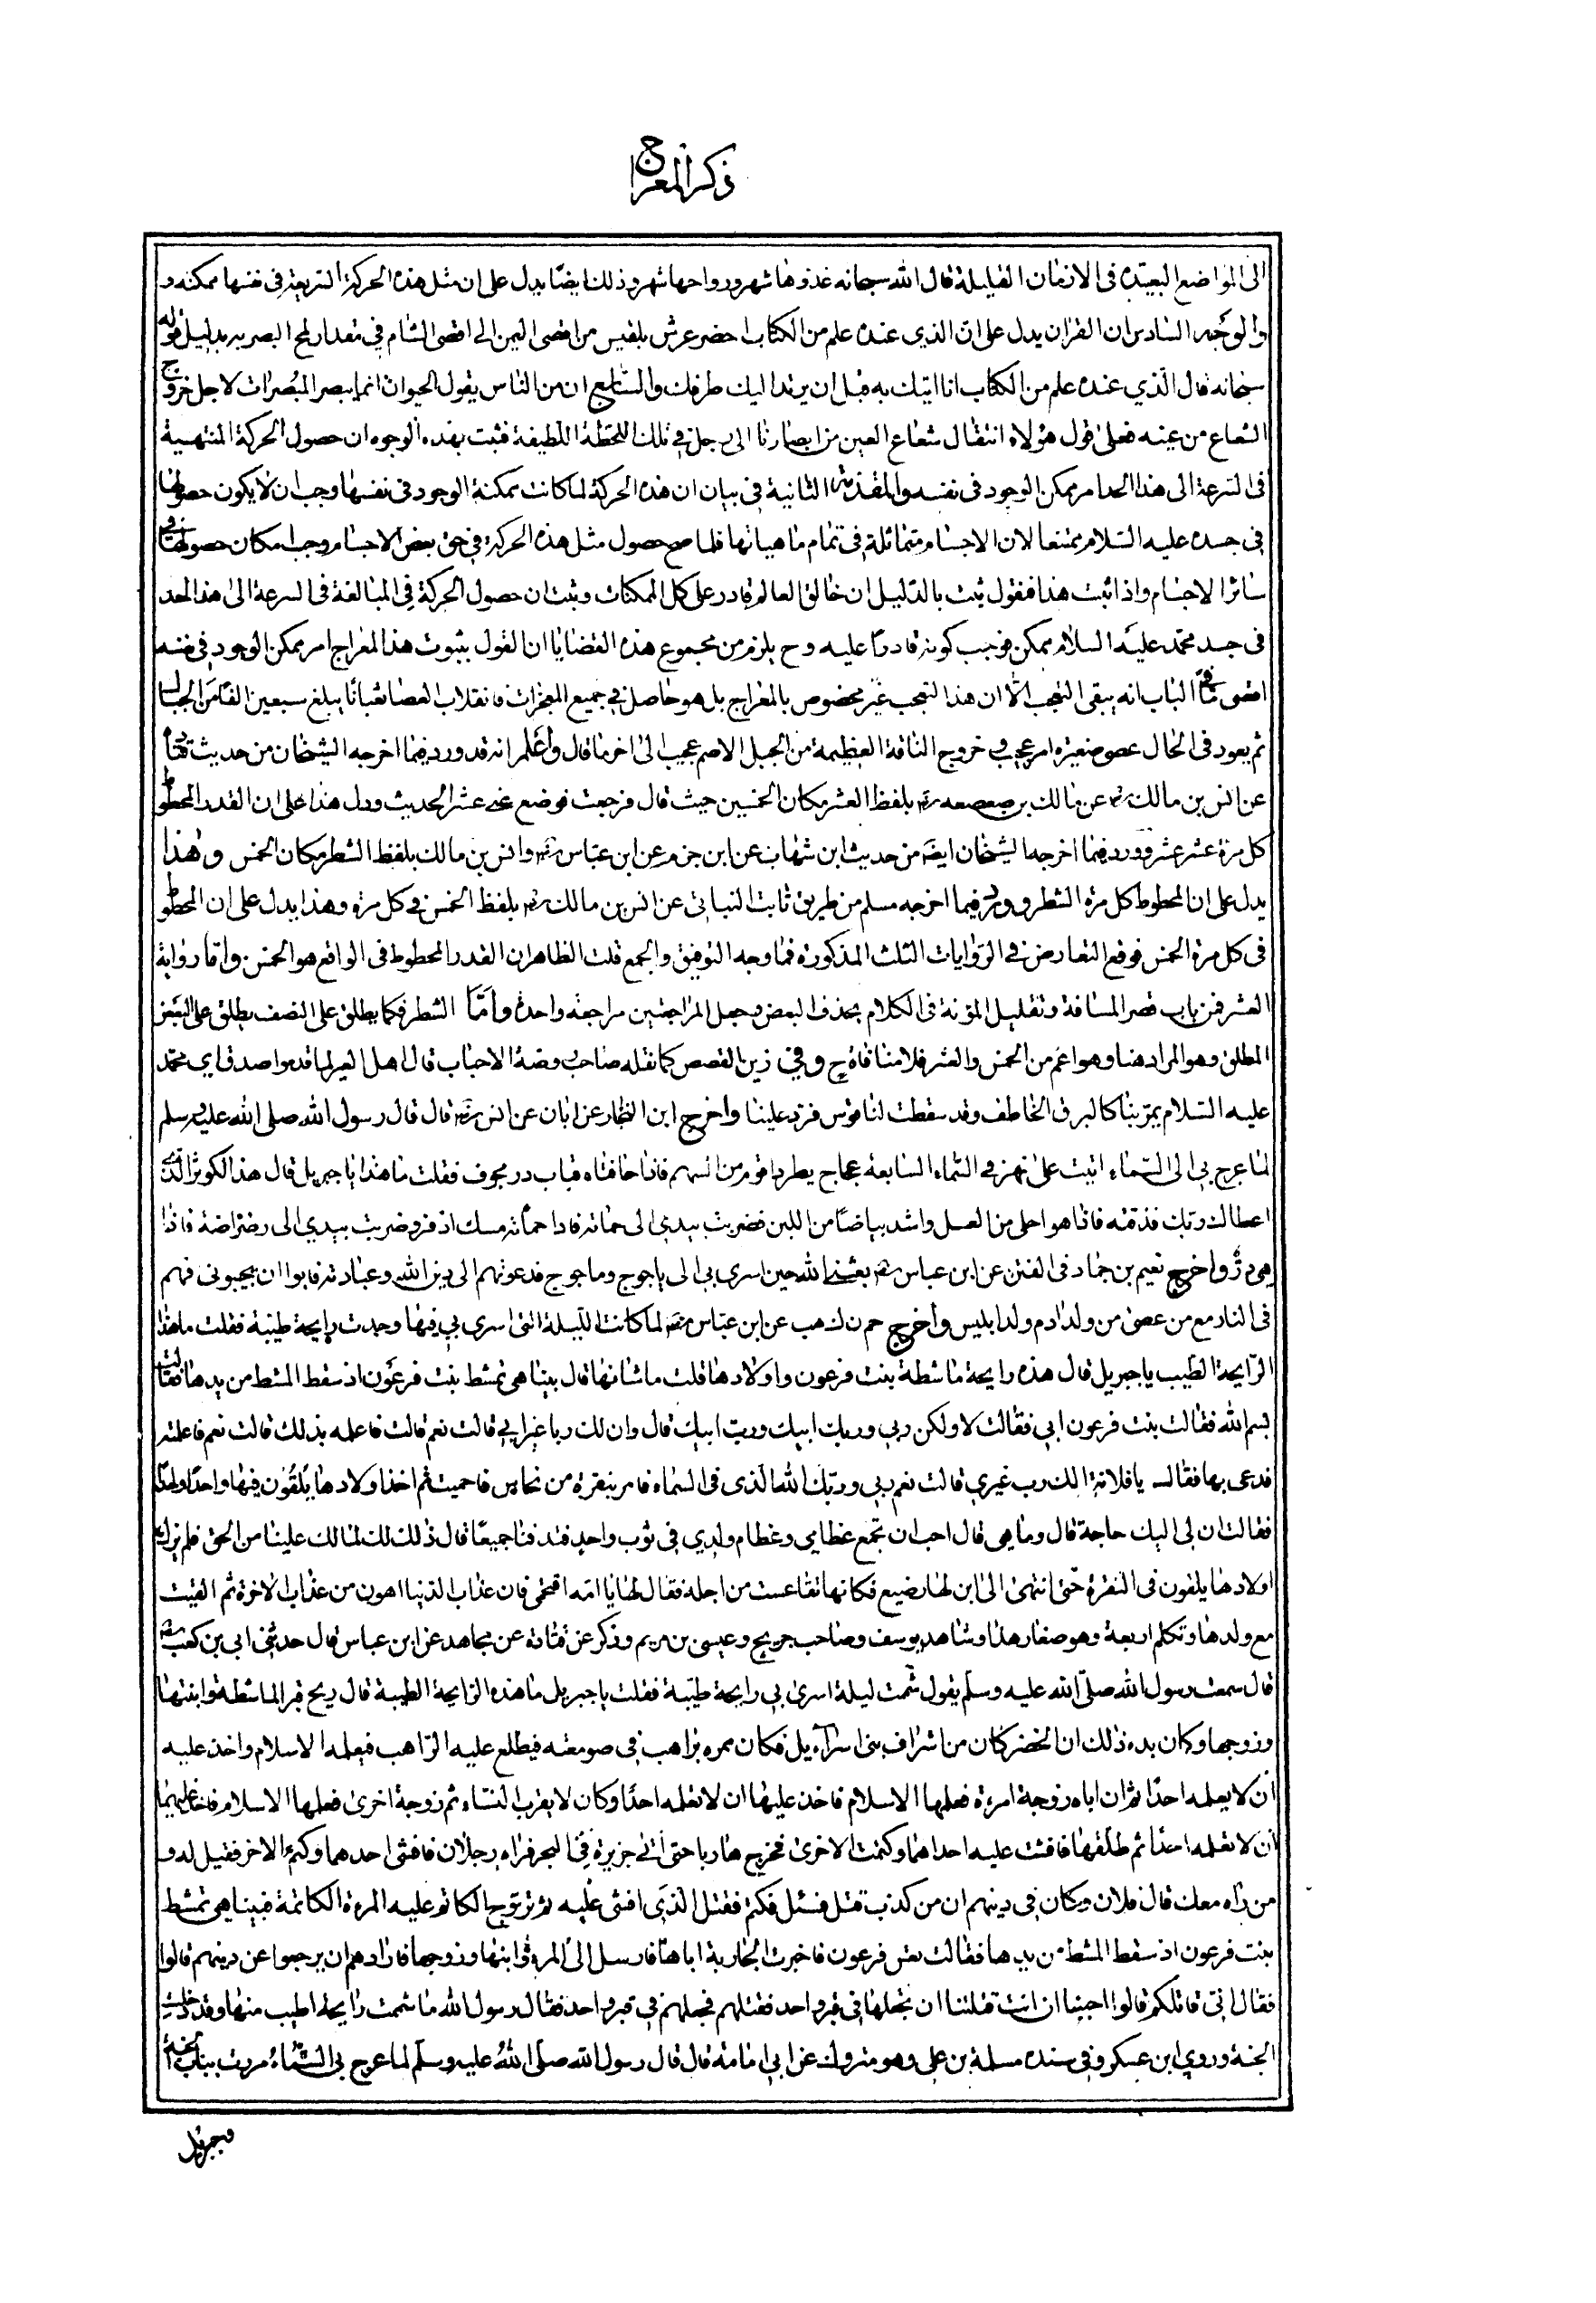 ذكر المعراج
الى المواضع البعيدة فى الازمان القليلة قال الله سبحانه غدوها شهر ورواحها شهر وذلك ايضا يدل على ان مثل هذه الحركة السريعة فى نفسها ممكنه و
والوجه السادس ان القران يدل على ان الذي عنده علم من الكتاب احضر عرش بلقيس من اقصى اليمن الى اقصى الشام في مقدار لمح البصر بدليل قوله
سبحانه قال الذي عنده علم من الكتاب انا اتيك به قبل ان يرتد اليك طرفك والسابع ان من الناس يقول الحيوان انما يبصر المبصرات لاجل خروج
الشعاع من عينه فعلى قول هؤلاء انتقال شعاع العين من ابصارنا الى رجل في تلك اللحظة اللطيفة فثبت بهذه الوجوه ان حصول الحركة المنتهية
فى السرعة الى هذا الحد امر ممكن الوجود فى نفسه والمقدمة الثانية فى بيان ان هذه الحركة لما كانت ممكنة الوجود فى نفسها وجب ان لا يكون حصولها
في جسده عليه السلام ممتنعا لان الاجسام متماثلة فى تمام ماهياتها فلما صح حصول مثل هذه الحركة في حق بعض الاجسام وجب امكان حصولها في
سائر الاجسام واذا ثبت هذا فنقول ثبت بالدليل ان خالق العالم قادر على كل الممكنات وثبت ان حصول الحركة في المبالغة فى السرعة الى هذا الحد
فى جسد محمد عليه السلام ممكن فوجب كونه قادرا عليه وح يلزم من مجموع هذه القضايا ان القول بثبوت هذا المعراج امر ممكن الوجود في نفسه
اقصى ما في الباب انه يبقى التعجب الا ان هذا التعجب غير مخصوص بالمعراج بل هو حاصل في جميع المعجزات فانقلاب العصا ثعبانا يبلغ سبعين الفا من الحبال
ثم يعود فى الحال عصى صغيره امر عجيب و خروج الناقة العظيمة من الجبل الاصم عجيب الى اخر ما قال واعلم انه قد ورد فيما اخرجه الشيخان من حديث قتادة
عن انس بن مالك رضه عن مالك بن صعصعه رضه بلفظ العشر مكان الخمسين حيث قال فرجعت فوضع عني عشر الحديث ودل هذا على ان القدر المحطوط
كل مرة عشر عشر وورد فيما اخرجه الشيخان ايضه من حديث ابن شهاب عن ابن حزم عن ابن عباس رضه وانس بن مالك بلفظ الشطر مكان الخمس وهذا
يدل على ان المحطوط كل مرة الشطر وورد فيما اخرجه مسلم من طريق ثابت البناني عن انس بن مالك رضه بلفظ الخمس في كل مرة وهذا يدل على ان المحطوط
فى كل مرة الخمس فوقع التعارض في الروايات الثلث المذكورة فما وجه التوفيق والجمع قلت الظاهر ان القدر المحطوط فى الواقع هو الخمس واما رواية
العشر فمن باب قصر المسافة وتقليل المؤنة فى الكلام بحذف البعض وجعل المراجعتين مراجعة واحدة واما الشطر فكما يطلق على النصف يطلق على البعض
المطلق وهو المراد هنا وهو اعم من الخمس والعشر فلا منافاة ح وفي زين القصص كما نقله صاحب روضة الاحباب قال اهل العير لما قدموا صدق اي محمد
عليه السلام يمر بنا كالبرق الخاطف وقد سقطت لنا قوس فرد علينا واخرج ابن النجار عن ابان عن انس رضه قال قال رسول الله صلى الله عليه وسلم
لما عرج بي الى السماء اتيت على نهر في السماء السابعة عجاج يطرد اقوم من السهم فاذا حافتاه قباب در مجوف فقلت ما هذا يا جبريل قال هذا الكوثر الذي
اعطاك ربك فذقته فاذا هو احلى من العسل واشد بياضا من اللبن فضربت بيدي الى حماته فاذا حماته مسك اذفر وضربت بيدي الى رضراضه فاذا
هي در واخرج نعيم بن حماد فى الفتن عن ابن عباس رضه بعثني الله حين اسرى بي الى ياجوج وماجوج فدعوتهم الى دين الله وعبادته فابوا ان يجيبوني فهم
فى النار مع من عصى من ولد ادم وولد ابليس واخرج حم ن ه ب عن ابن عباس رضه لما كانت الليلة التى اسرى بي فيها وجدت رايحة طيبة فقلت ما هذا
الرايحة الطيب يا جبريل قال هذه رايحة ماشطة بنت فرعون واولادها قلت ما شانها قال بينا هى تمشط بنت فرعون اذ سقط المشط من يدها فقالت
بسم الله فقالت بنت فرعون ابي فقالت لا ولكن ربي وربك ورب ابيك قال وان لك ربا غير ابي قالت نعم قالت فاعلمه بذلك قالت نعم فاعلمته
فدعى بها فقال يا فلانة الك رب غيري قالت نعم ربي وربك الله الذى فى السماء فامر بنقرة من نحاس فاحميت ثم اخذ اولادها يلقون فيها واحدا واحدا
فقالت ان لى اليك حاجة قال وما هي قال احب ان تجمع عظامي وعظام ولدي في ثوب واحد فتدفنا جميعا قال ذلك لك لما لك علينا من الحق فلم يزل
اولادها يلقون فى النقرة حتى انتهى الى ابن لها رضيع فكانها تقاعست من اجله فقال لها يا امه اقتحمي فان عذاب الدنيا اهون من عذاب الاخرة ثم القيت
مع ولدها وتكلم اربعة وهو صغار هذا وشاهد يوسف وصاحب جريج وعيسى بن مريم وذكر عن قتادة عن مجاهد عن ابن عباس قال حدثني ابى بن كعب رضه
قال سمعت رسول الله صلى الله عليه وسلم يقول شممت ليلة اسرى بي رايحة طيبة فقلت يا جبريل ما هذه الرايحة الطيبة قال ريح قبر الماشطة وابنتها
وزوجها وكان بدء ذلك ان الخضر كان من اشراف بنى اسرآءيل فكان ممره براهب في صومعته فيطلع عليه الراهب فيعلمه الاسلام واخذ عليه
ان لا يعلمه احدا ثم ان اباه زوجة امرءة فعلمها الاسلام فاخذ عليها ان لا تعلمه احدا وكان لا يقرب النساء ثم زوجة اخرى فعلمها الاسلام فاخذ عليها
ان لا تعلمه احدا ثم طلقها فافشت عليه احداهما وكتمت الاخرى فخرج هاربا حتى اتى جزيرة في البحر فراه رجلان فافشى احدهما وكتم الاخر فقيل له و
من راه معك قال فلان وكان في دينهم ان من كذب قتل فسئل فكتم فقتل الذي افشى عليه ثم تزوج الكاتم عليه المرءة الكاتمة فبينا هي تمشط
بنت فرعون اذ سقط المشط من يدها فقالت تعس فرعون فاخبرت الجارية اباها فارسل الى المرءة وابنها وزوجها فارادهم ان يرجعوا عن دينهم فابوا
فقال انى قاتلكم قالوا احببنا ان انت قتلتنا ان تجعلنا فى قبر واحد فقتلهم فجعلهم في قبر واحد فقال رسول الله ما شممت رايحة اطيب منها وقد دخلت
الجنة وروي ابن عسكر وفى سنده مسلمة بن على وهو متروك عن ابى امامة قال قال رسول الله صلى الله عليه وسلم لما عرج بى السماء مررت بباب الجنة
وجبريل